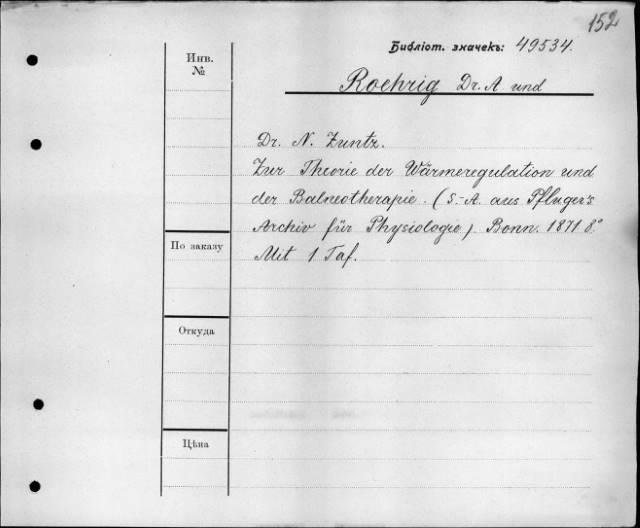 152
Библіот. значекъ: 49534.
Инв.
№
Roehrig Dr. A und
Dr. N. Zuntz.
Zur Theorie der Wärmeregulation und
der Balneotherapie. (S.-A. aus Pfluger's
Archiv für Physiologie) Bonn. 1871 8.°
По заказу
Mit 1 Taf.
Откуда
Цѣна